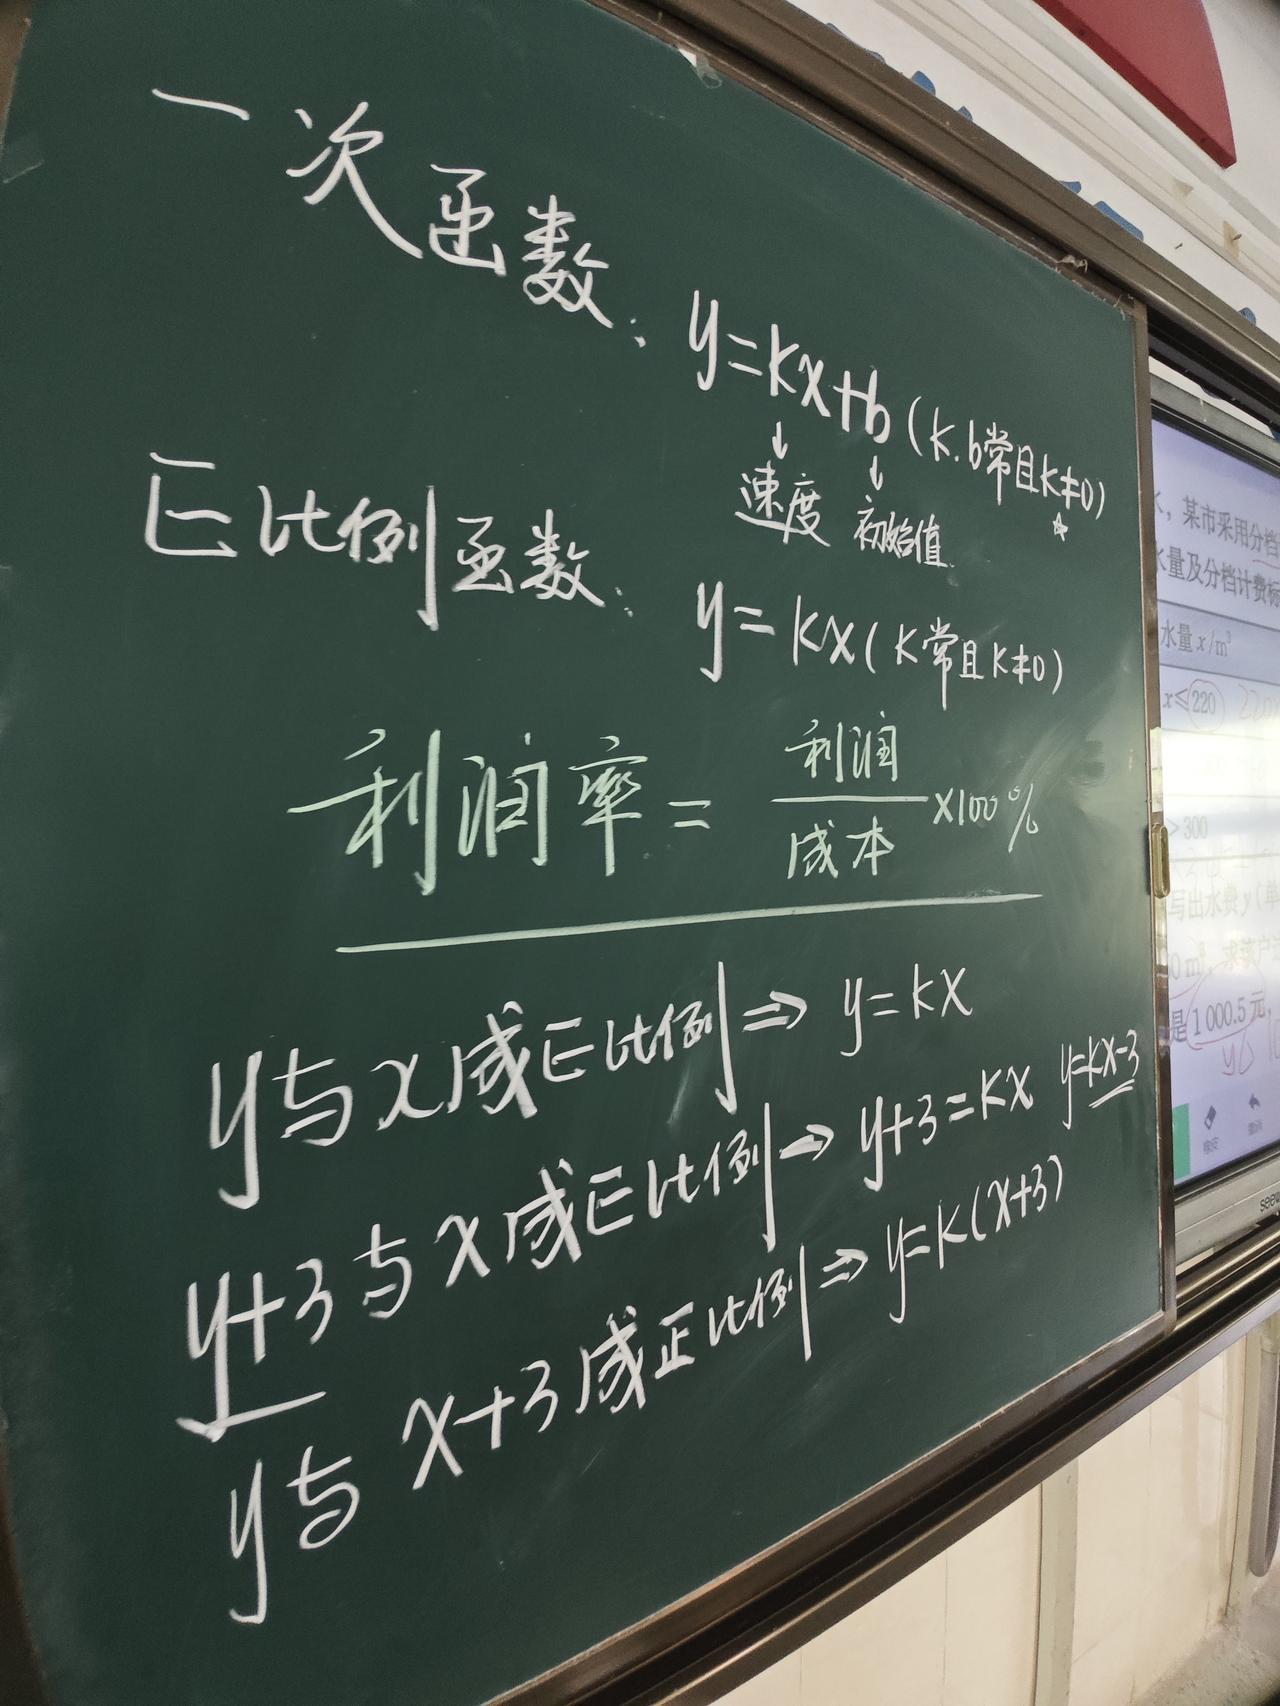 一次函数：y=kx+b（k.b常且k≠0）
↓速度 ↓初始值
☆
正比例函数：y=kx（k常且k≠0）
利润率=利润/成本×100%
y与x成正比例⇒y=kx
y+3与x成正比例⇒y+3=kx y=kx-3
y与x+3成正比例⇒y=k(x+3)
水，某市采用分档
水量及分档计费标
水量x/m³
x≤220
>300
写出水费y（单
0 m³，求该户
是1000.5元，
橡皮
seewo